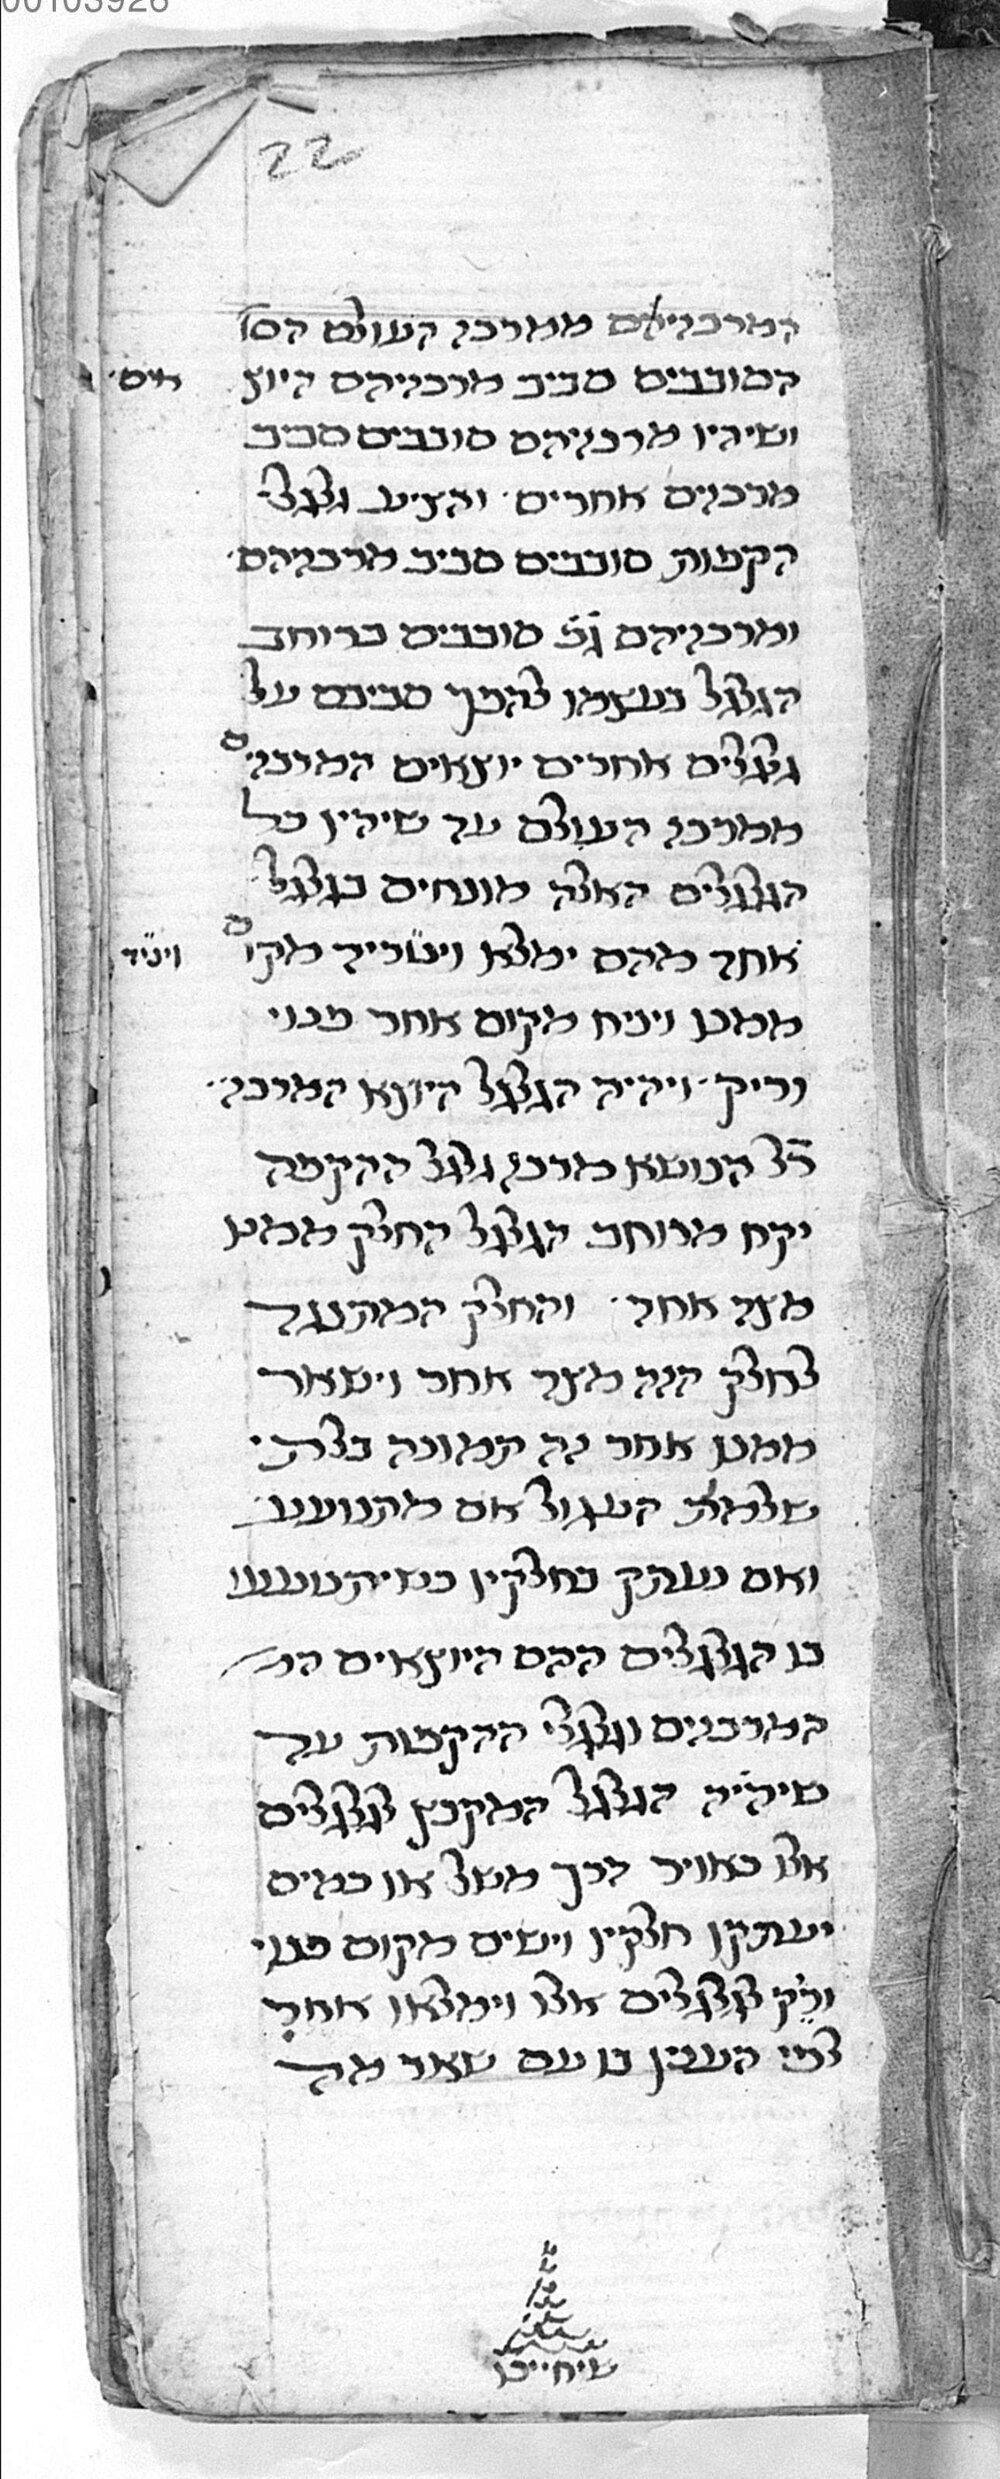 00103926
22
המרכזיאם ממרכז העולם הסו
הסובבים סביב מרכזיהם היוצ אים
ושיהיו מרכזיהם סובבים סביב
מרכזים אחרים והציע גלגלי
הקפות סובבים סביב מרכזיהם
ומרכזיהם ג"כ סובבים ברוחב
הגלגל בעצמו להפך סביבם על
גלגלים אחרים יוצאים המרכזים
ממרכז העולם עד שיהיו כל
הגלגלים האלה מונחים בגלגל
אחד מהם ימצא ויטריד מקום ויטיד
ממנו ויניח מקום אחר פנוי
וריק ויהיה הגלגל היוצא המרכז
ר"ל הנושא מרכז גלגל ההקפה
יקח מרוחב הגלגל החלק ממנו
מצד אחד והחלק המתנגד
לחלק הזה מצד אחר וישאר
ממנו אחר זה תמונה בלתי
שלמת העגול אם מתנועע
ואם נעתק בחלקיו כשיתנועעו
בו הגלגלים ההם היוצאים
המרכזים וגלגלי ההקפות עד
שיהיה הגלגל המקבץ לגלגלים
אלו כאויר דרך משל או כמים
יעתקו חלקיו וישים מקום פנוי
וריק לגלגלים אלו וימצאו אחד
לפי הענין בו עם שאר מה
שיחייבו